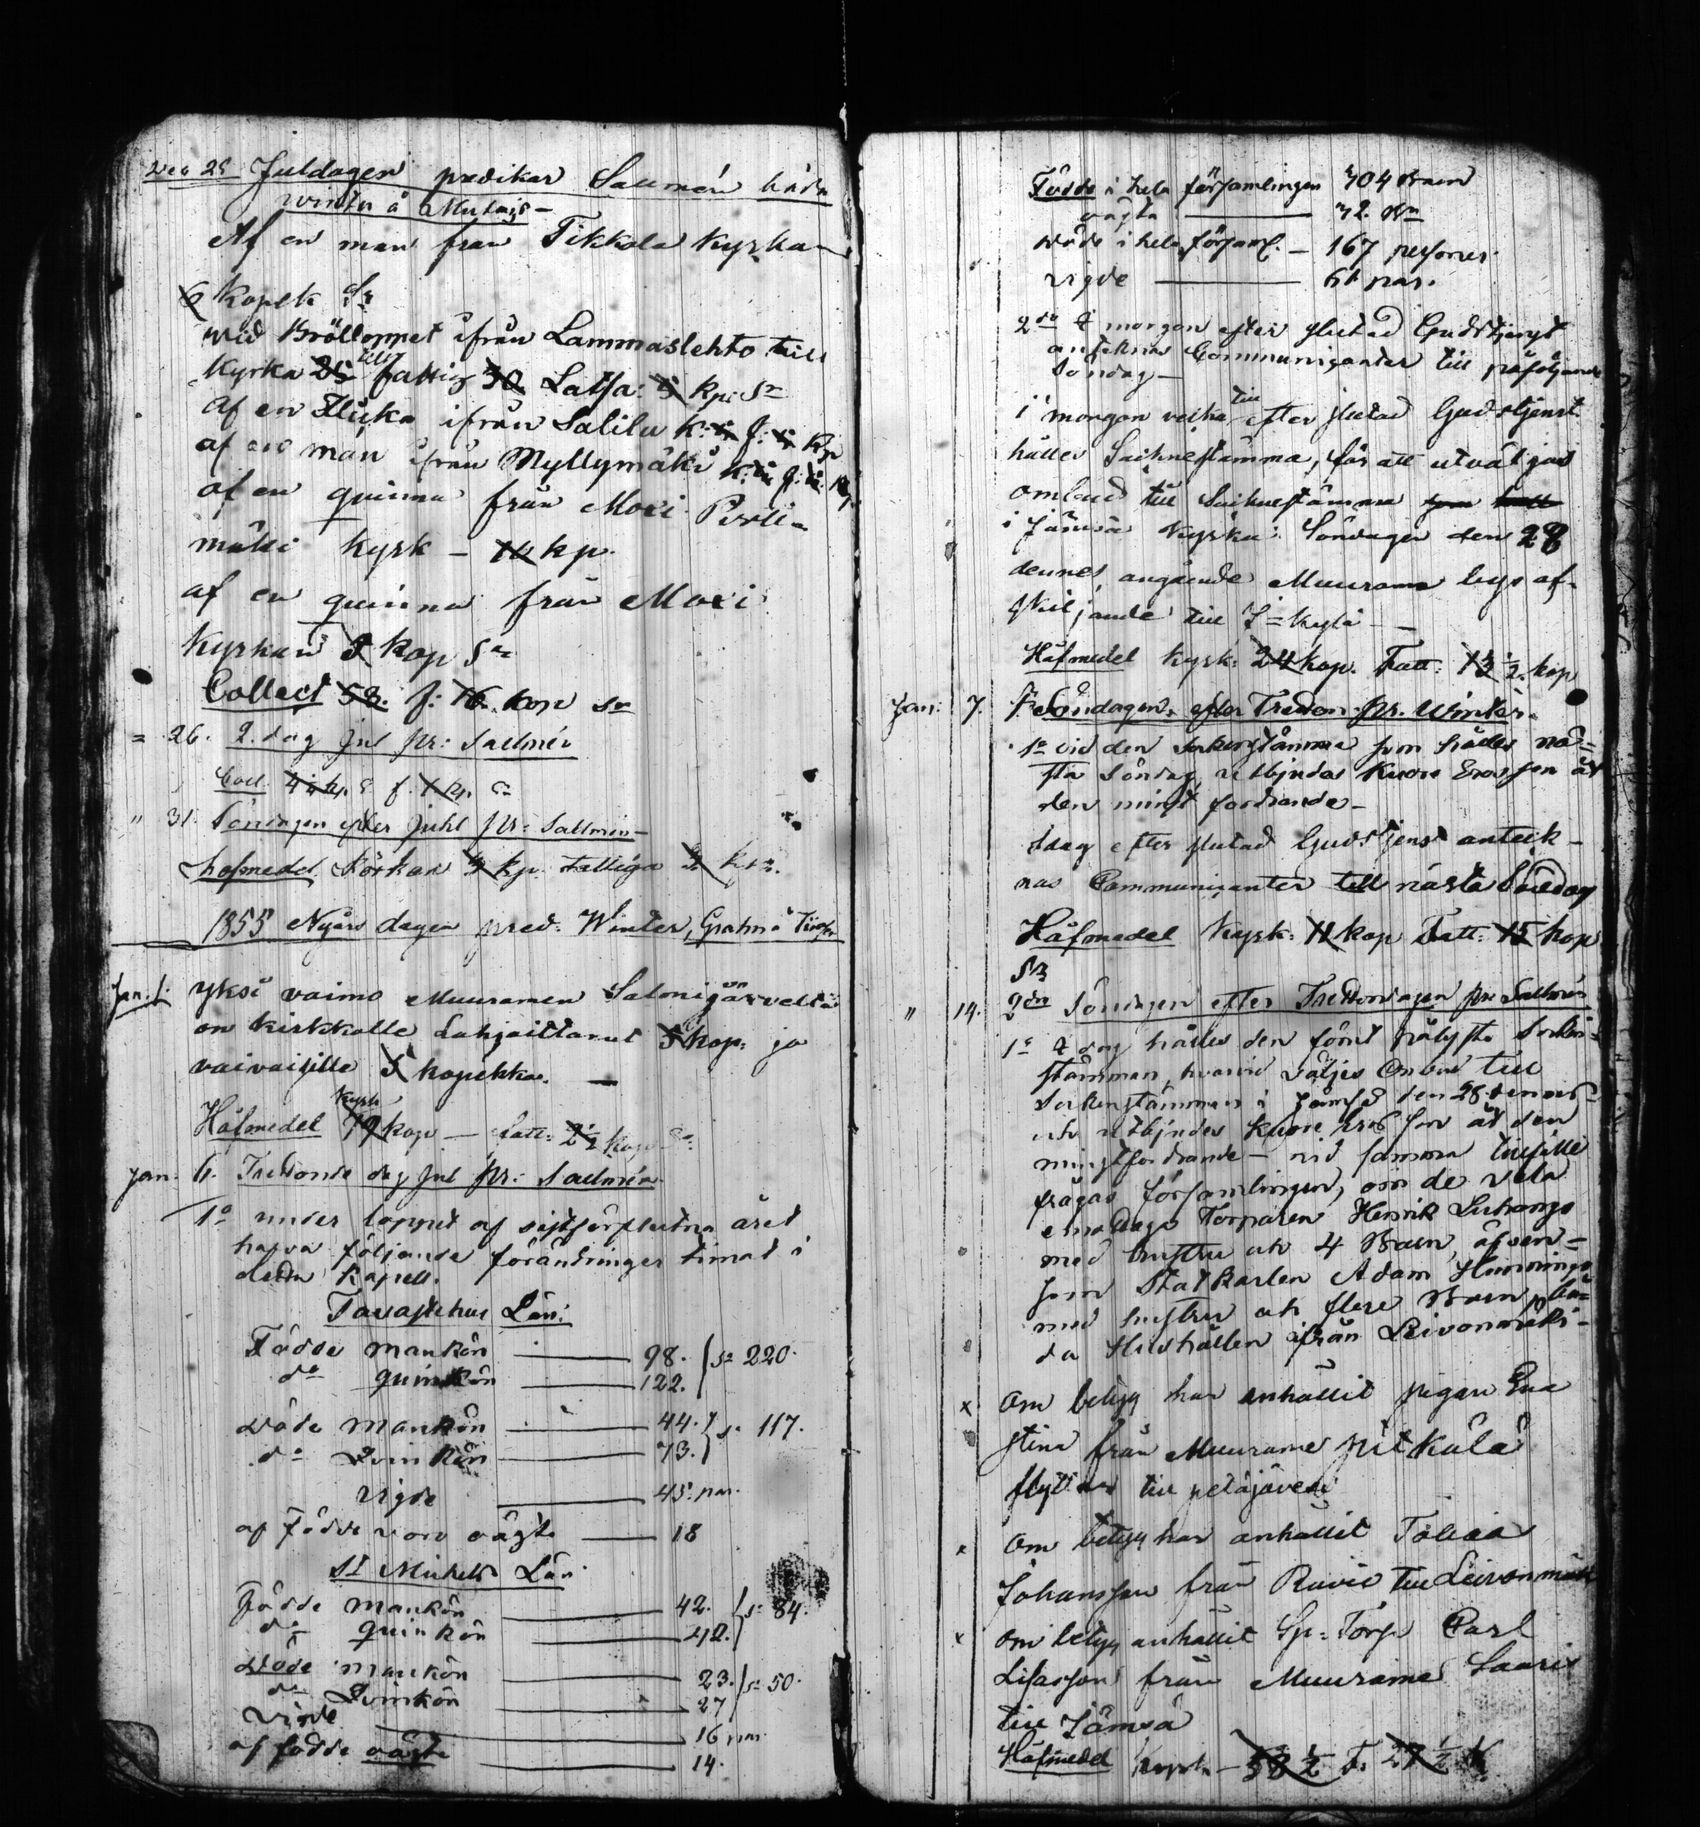 Dec 25 Juldagen predikar Salmén härn
Winter å
Af en man från Tikkala Kyrkan
6 Kopek Sr
wid Brölloppet ifrån Lammaslehto till
Kyrka 25 till fattig 30 Latja: 5 kp: Sr
af en Flicka ifrån Salila K: f: kp
af en man ifrån Myllymäki K: f:
af en quinna från Mori Perttu
mäki kyrk – 10 kp.
af en quinna från Mori
Kyrkan 5 kop Sr
Collect 58. f: 16 kop Sr
= 26. 2. dag Jul pr: Sallmén
Coll. kp. f. kp.
" 31. Söndagen efter Juhl pr: Sallmén
hofmedel kp. Fattiga kp.
1855 Nyårs dagen pred. Winter, Grahn
Jan. 1. yksi vaimo Muuramen Satonijärveltä
on kirkkolle Lahjoittanut 5 kop: ja
vaivaisille 5 kopekka. —
Kyrk
Håfmedel 19 kop — fatt: 2½ kop
Jan. 6. Trettonde dag Jul pr: Sallmén
1o under loppet af sistförflutna året
hafva följande förändringar timat i
detta Kapell.
Tavastehus Län:
Födde mankön — 98. } Sa 220.
do quinkön — 122.
Döde mankön — 44. } Sa 117.
do Quinkön — 73.
Vigde — 45 par.
af Födde voro oägta — 18
St Michels Län
Födde mankön — 42. } Sa 84.
do quinkön — 42.
Döde mankön — 23. } Sa 50.
do Quinkön — 27
Vigde — 16 par
af födde oägta — 14.
Födde i hela församlingen 304 Barn
oägta — 32. Dn
Döde i hela församl. — 167 personer
Vigde — 61 par.
2do I morgon efter slutad Gudstjenst
antecknas Communicanter till påföljande
Söndag —
i morgon vecka till efter slutad Gudstjenst
hålles Socknestämma, för att utväljas
ombud till Socknestämma
i Jämsä Kyrka: Söndagen den 28
dennes angående Muurame bys af-
skiljande till J=kylä —
Håfmedel Kyrk: 24 kop. Fatt: 13½ kop
Jan: 7. 1. Söndagen efter Tretton. pr. Winter.
1o vid den Sockenstämma som hålles nä=
sta Söndag utbjudas Kuore Eros son åt
den minst fordrande —
Idag efter slutad Gudstjenst anteck-
nas Communicanter till nästa böndag
Håfmedel Kyrk: 11 kop Fatt: 15 kop
Sr
" 14. 2dra Söndagen efter Trettondagen pr Sallmén
1o I dag hålles den förut pålyste Socken
stämman, hvarvid väljes Ombud till
Sockenstämman i Jämsä den 28 dennes
och utbjudes Kuore Eros son åt den
minstfordrande — vid samma tillfälle
frågas församlingen, om de vela
emottaga Torparen Henrik
med hustru och 4 Barn, äfven=
som Statkarlen Adam
med hustru och flere Barn, bå=
da Hushållen ifrån Leivonmäki —
x om betyg har anhållit pigan Eva
Stina från Muurame Pitkälä
flyttar till petäjävesi
x om betyg har anhållit Tobias
Johansson från Ravio till Leivonmäki
x om betyg anhållit Gp: Torp Carl
från Muurame Saari
till Jämsä
Håfmedel Kyrk — 58½ F: 27½ K